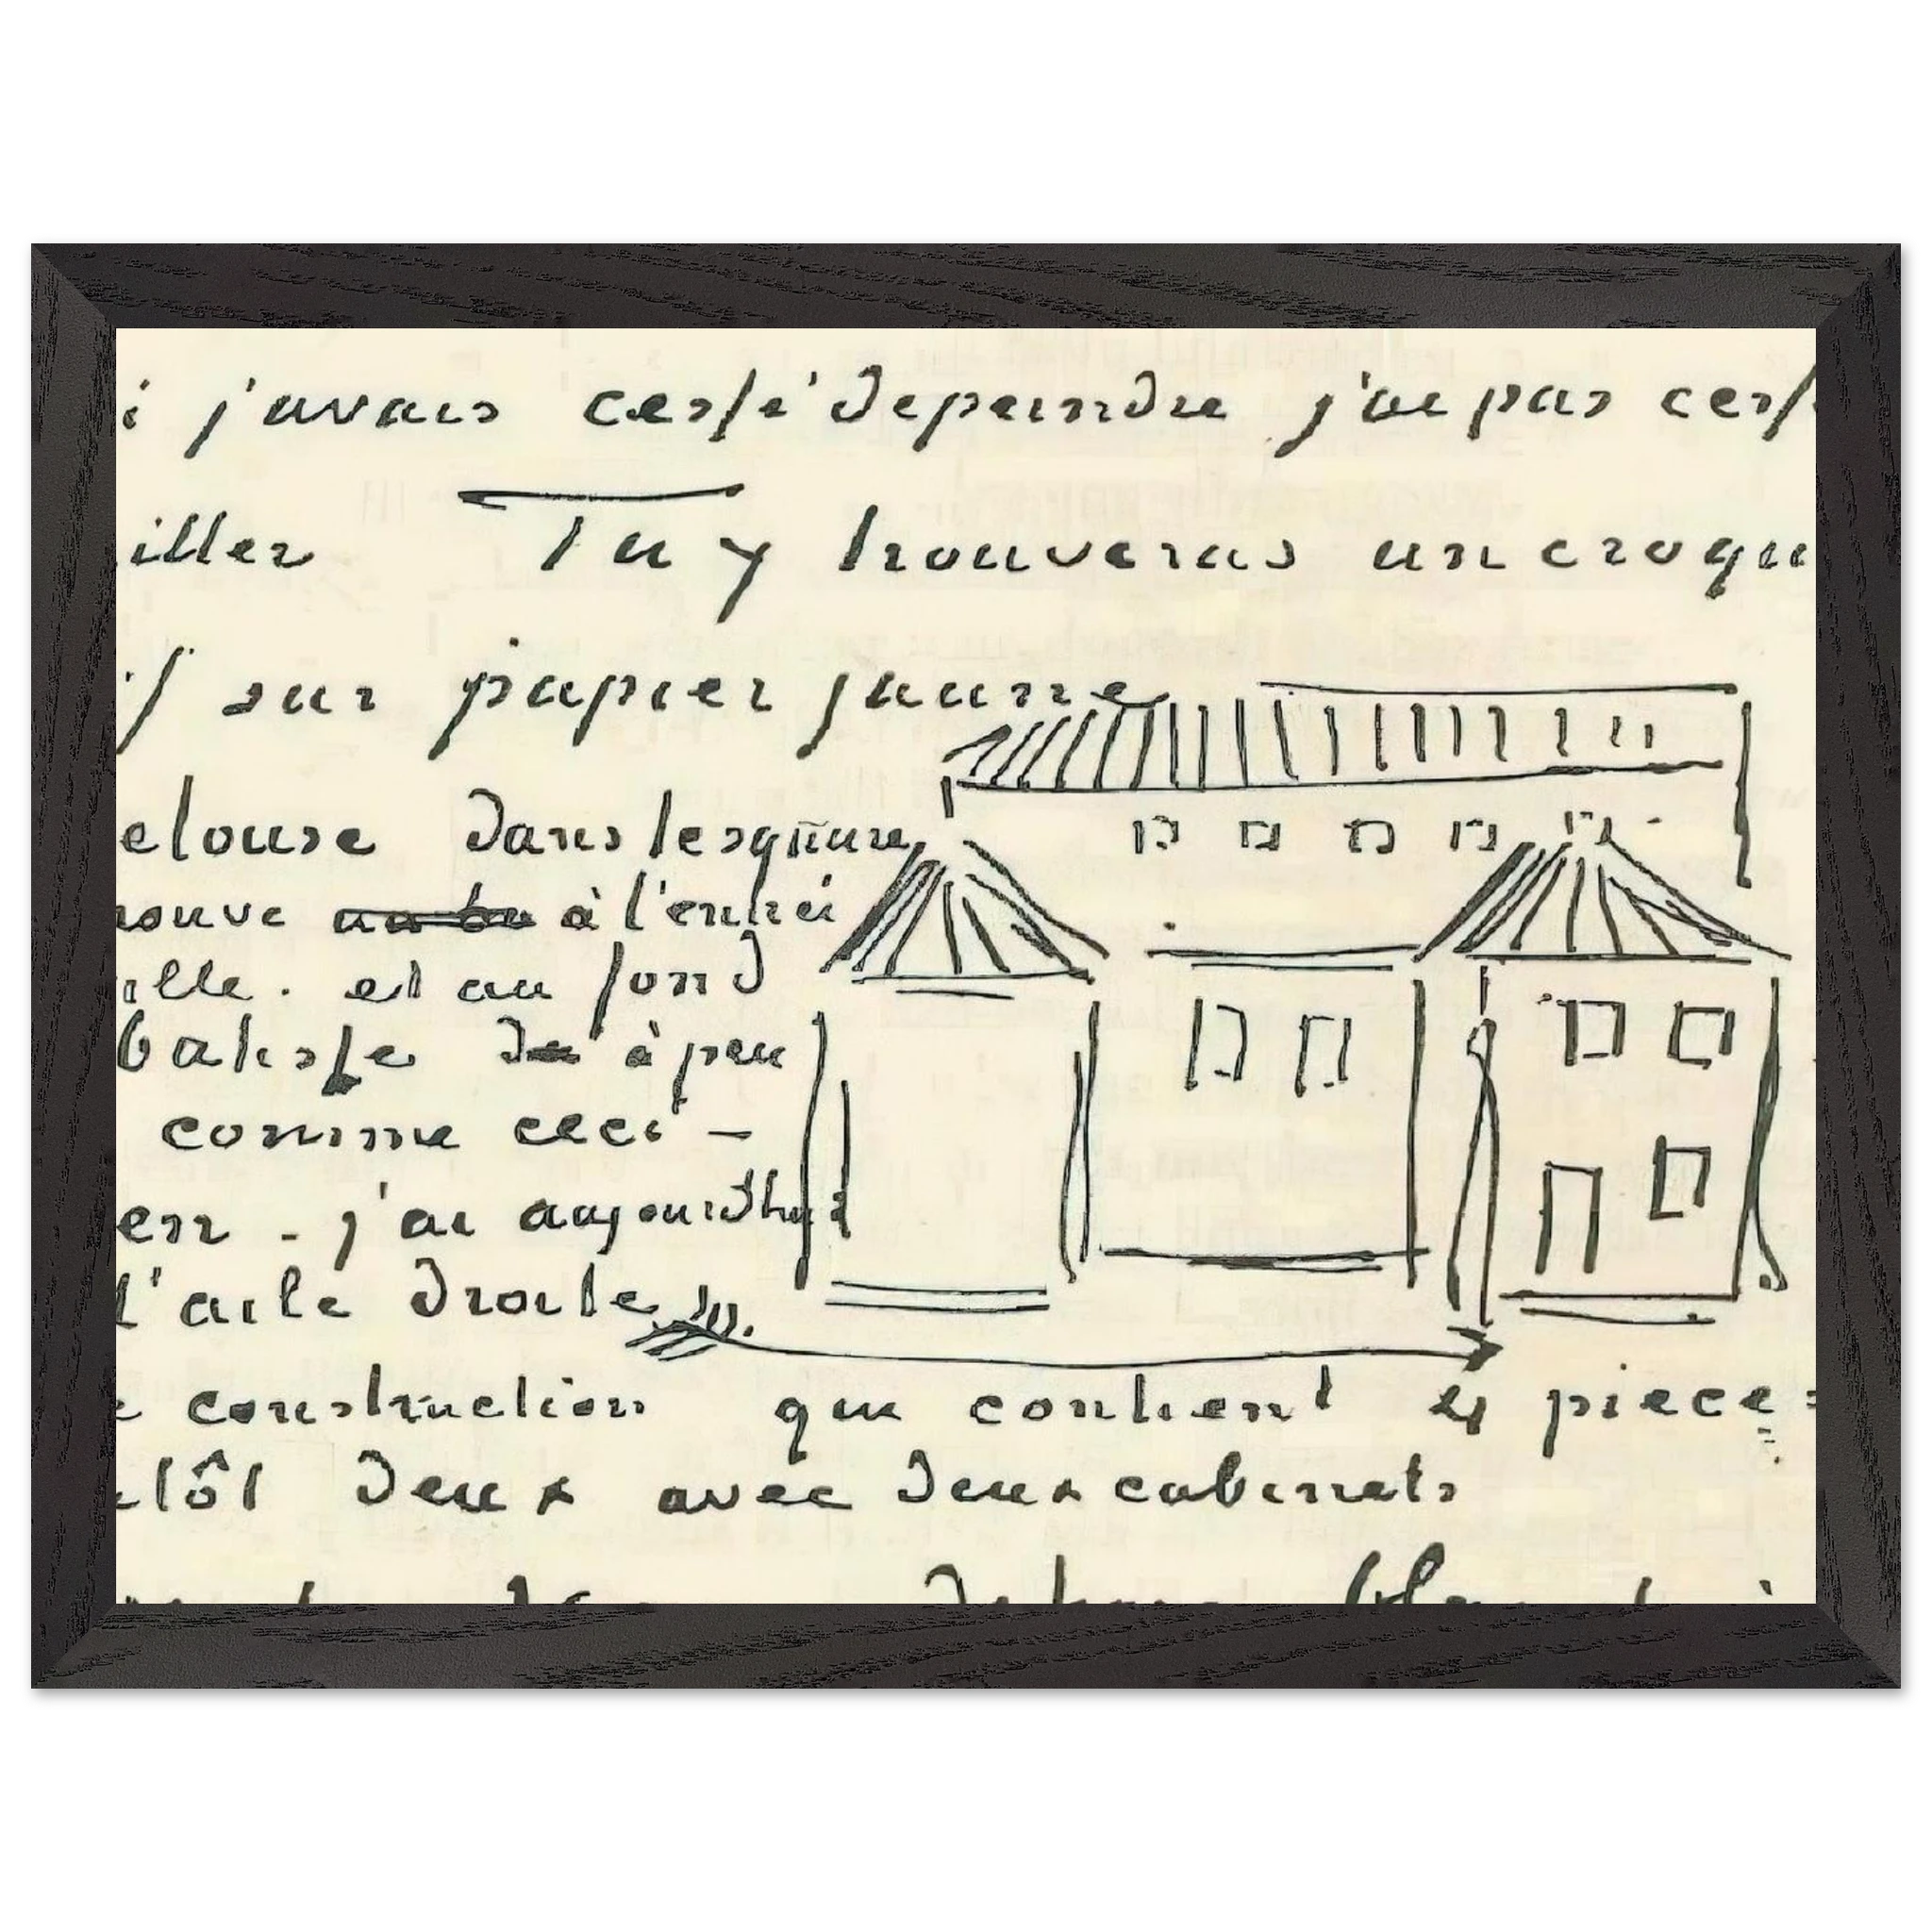 i j'avais cessé de peindre j'ai pas cess
iller Tu y trouveras un croqu
sur papier jaune
elouse dans le square
rouve à l'entré
ille. et au fond
batisse à peu
comme ceci –
en - j'ai aujourdhui
l'aile droite
e construction qui contient 4 pieces
tôt deux avec deux cabinets